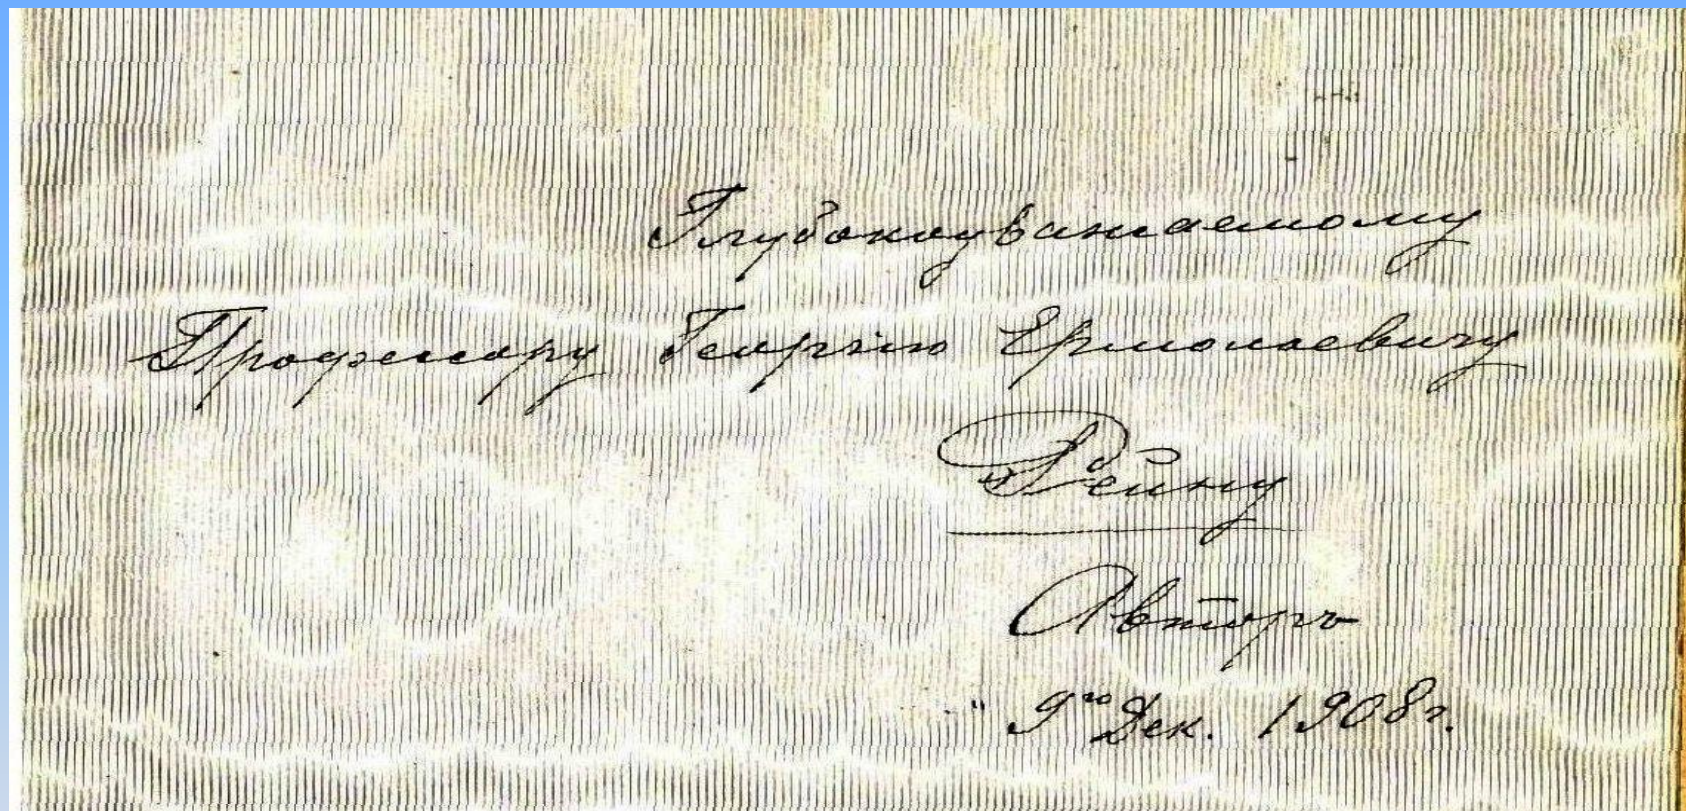 Глубокоуважаемому
Профессору Георгію Ермолаевичу
Рейну
Авторъ
" 9го Дек. 1908 г.